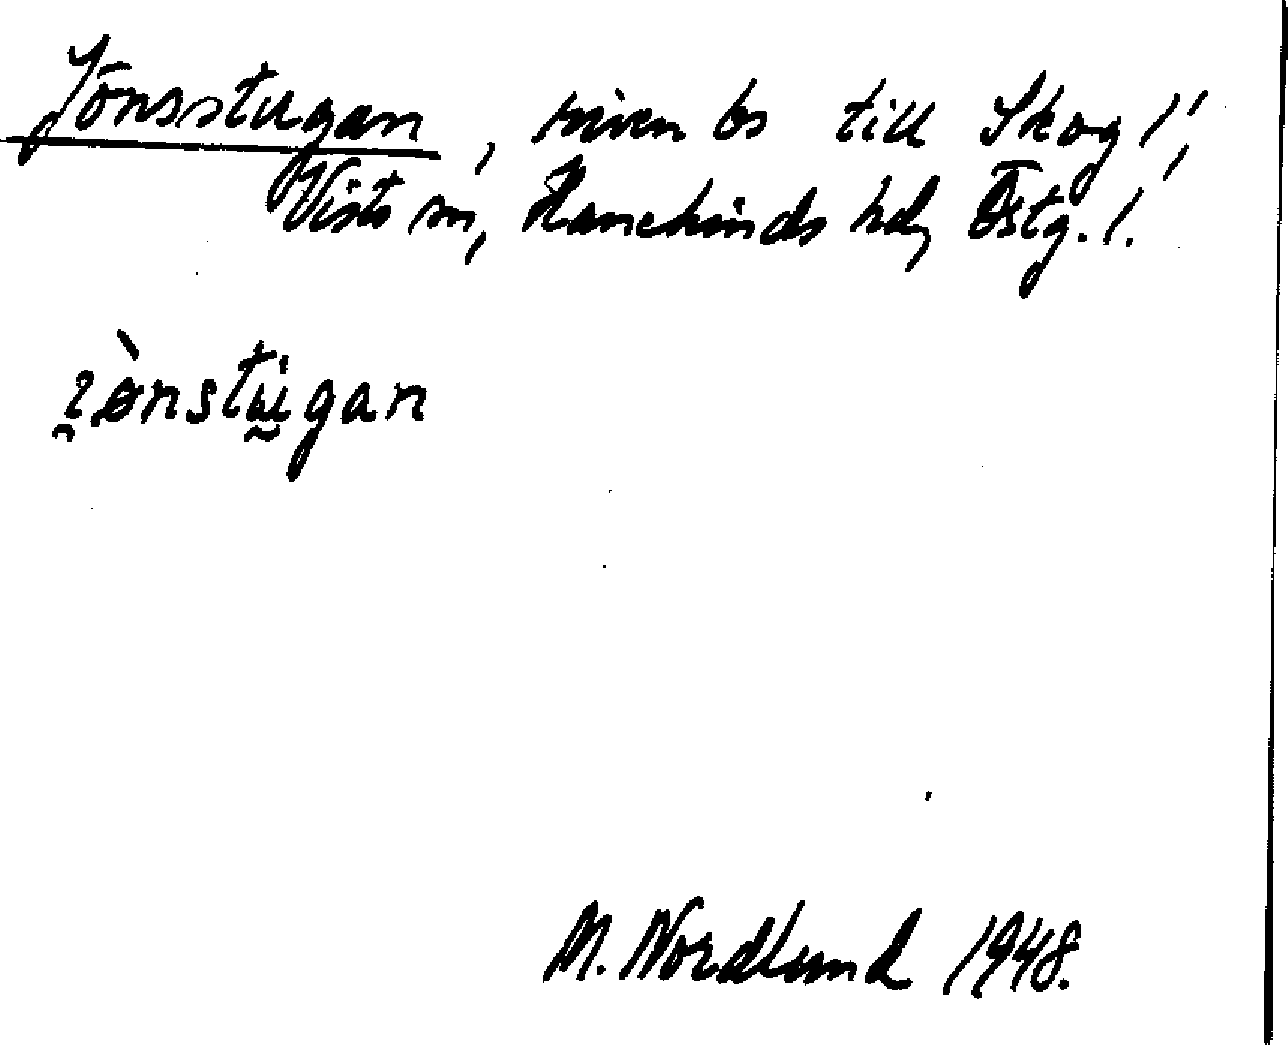 Jönsstugan, riven bs till Skog 1/1,
Vists sn, Hanekinds hd, Östg. l.
ɪ̯ònstu̇gan
M. Nordlund 1948.